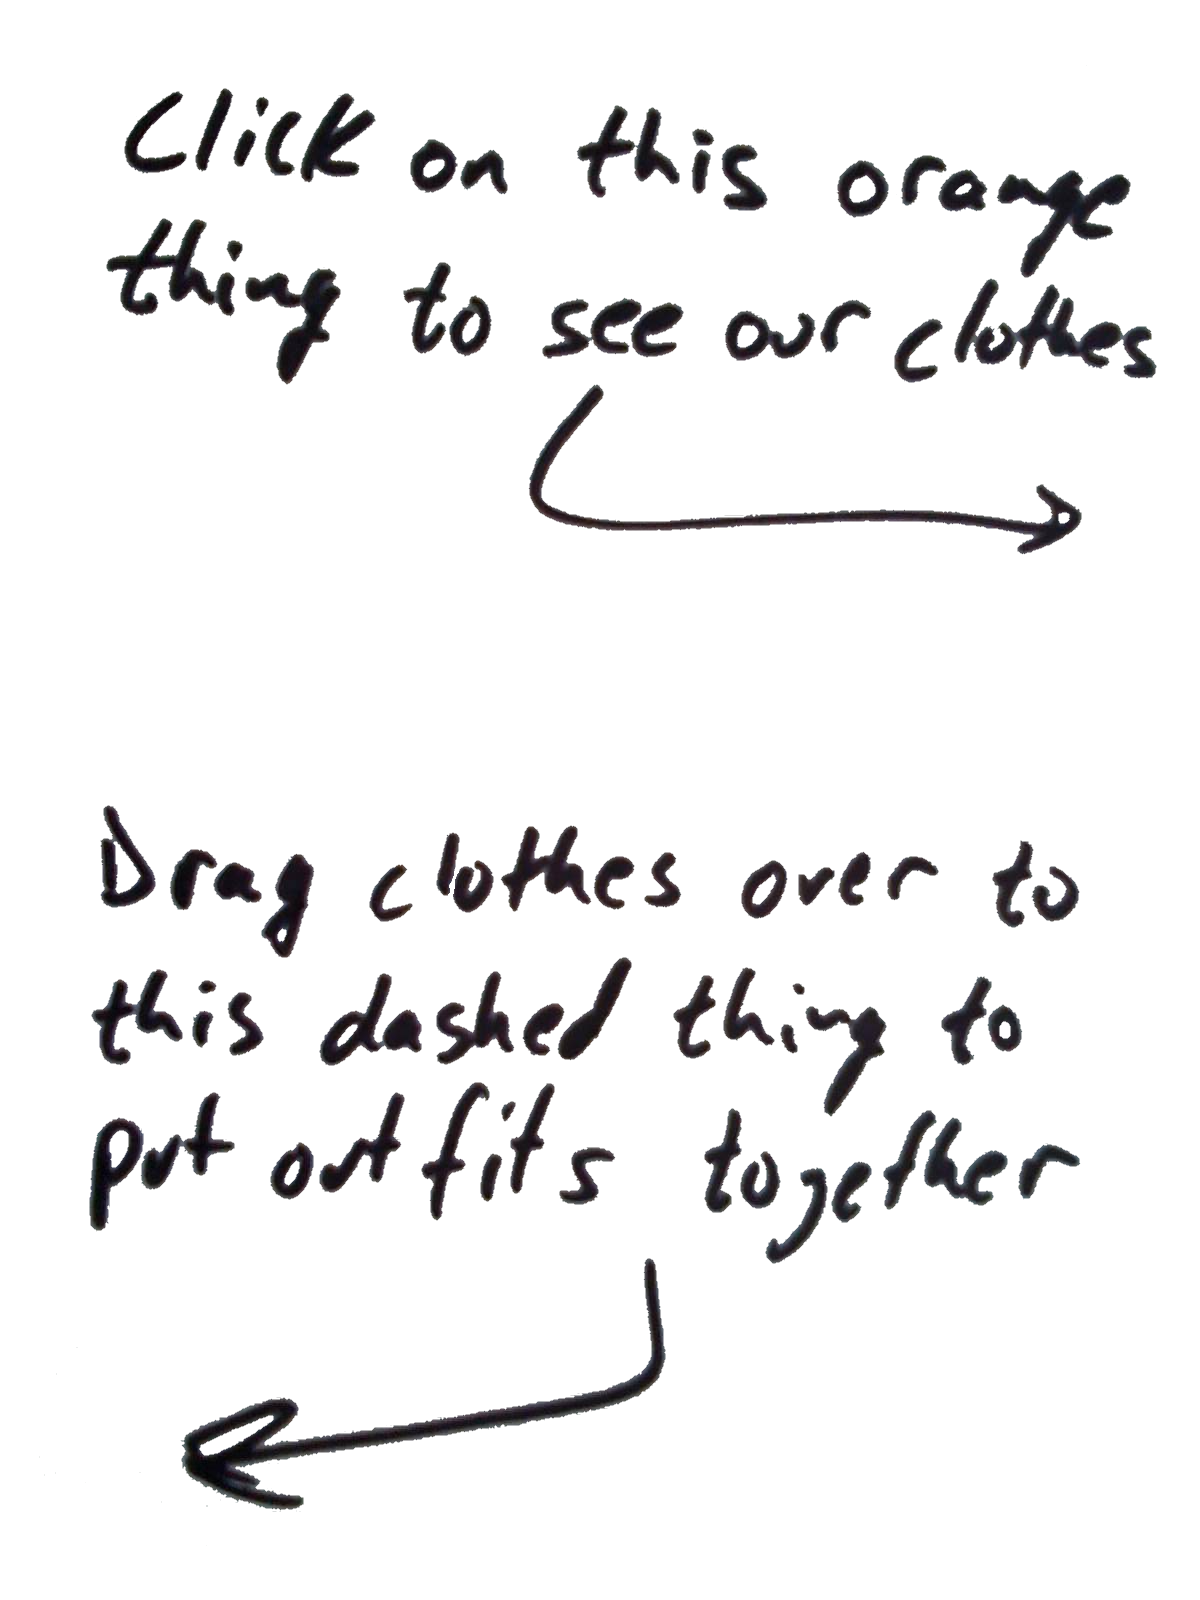 Click on this orange
thing to see our clothes
Drag clothes over to
this dashed thing to
put outfits together